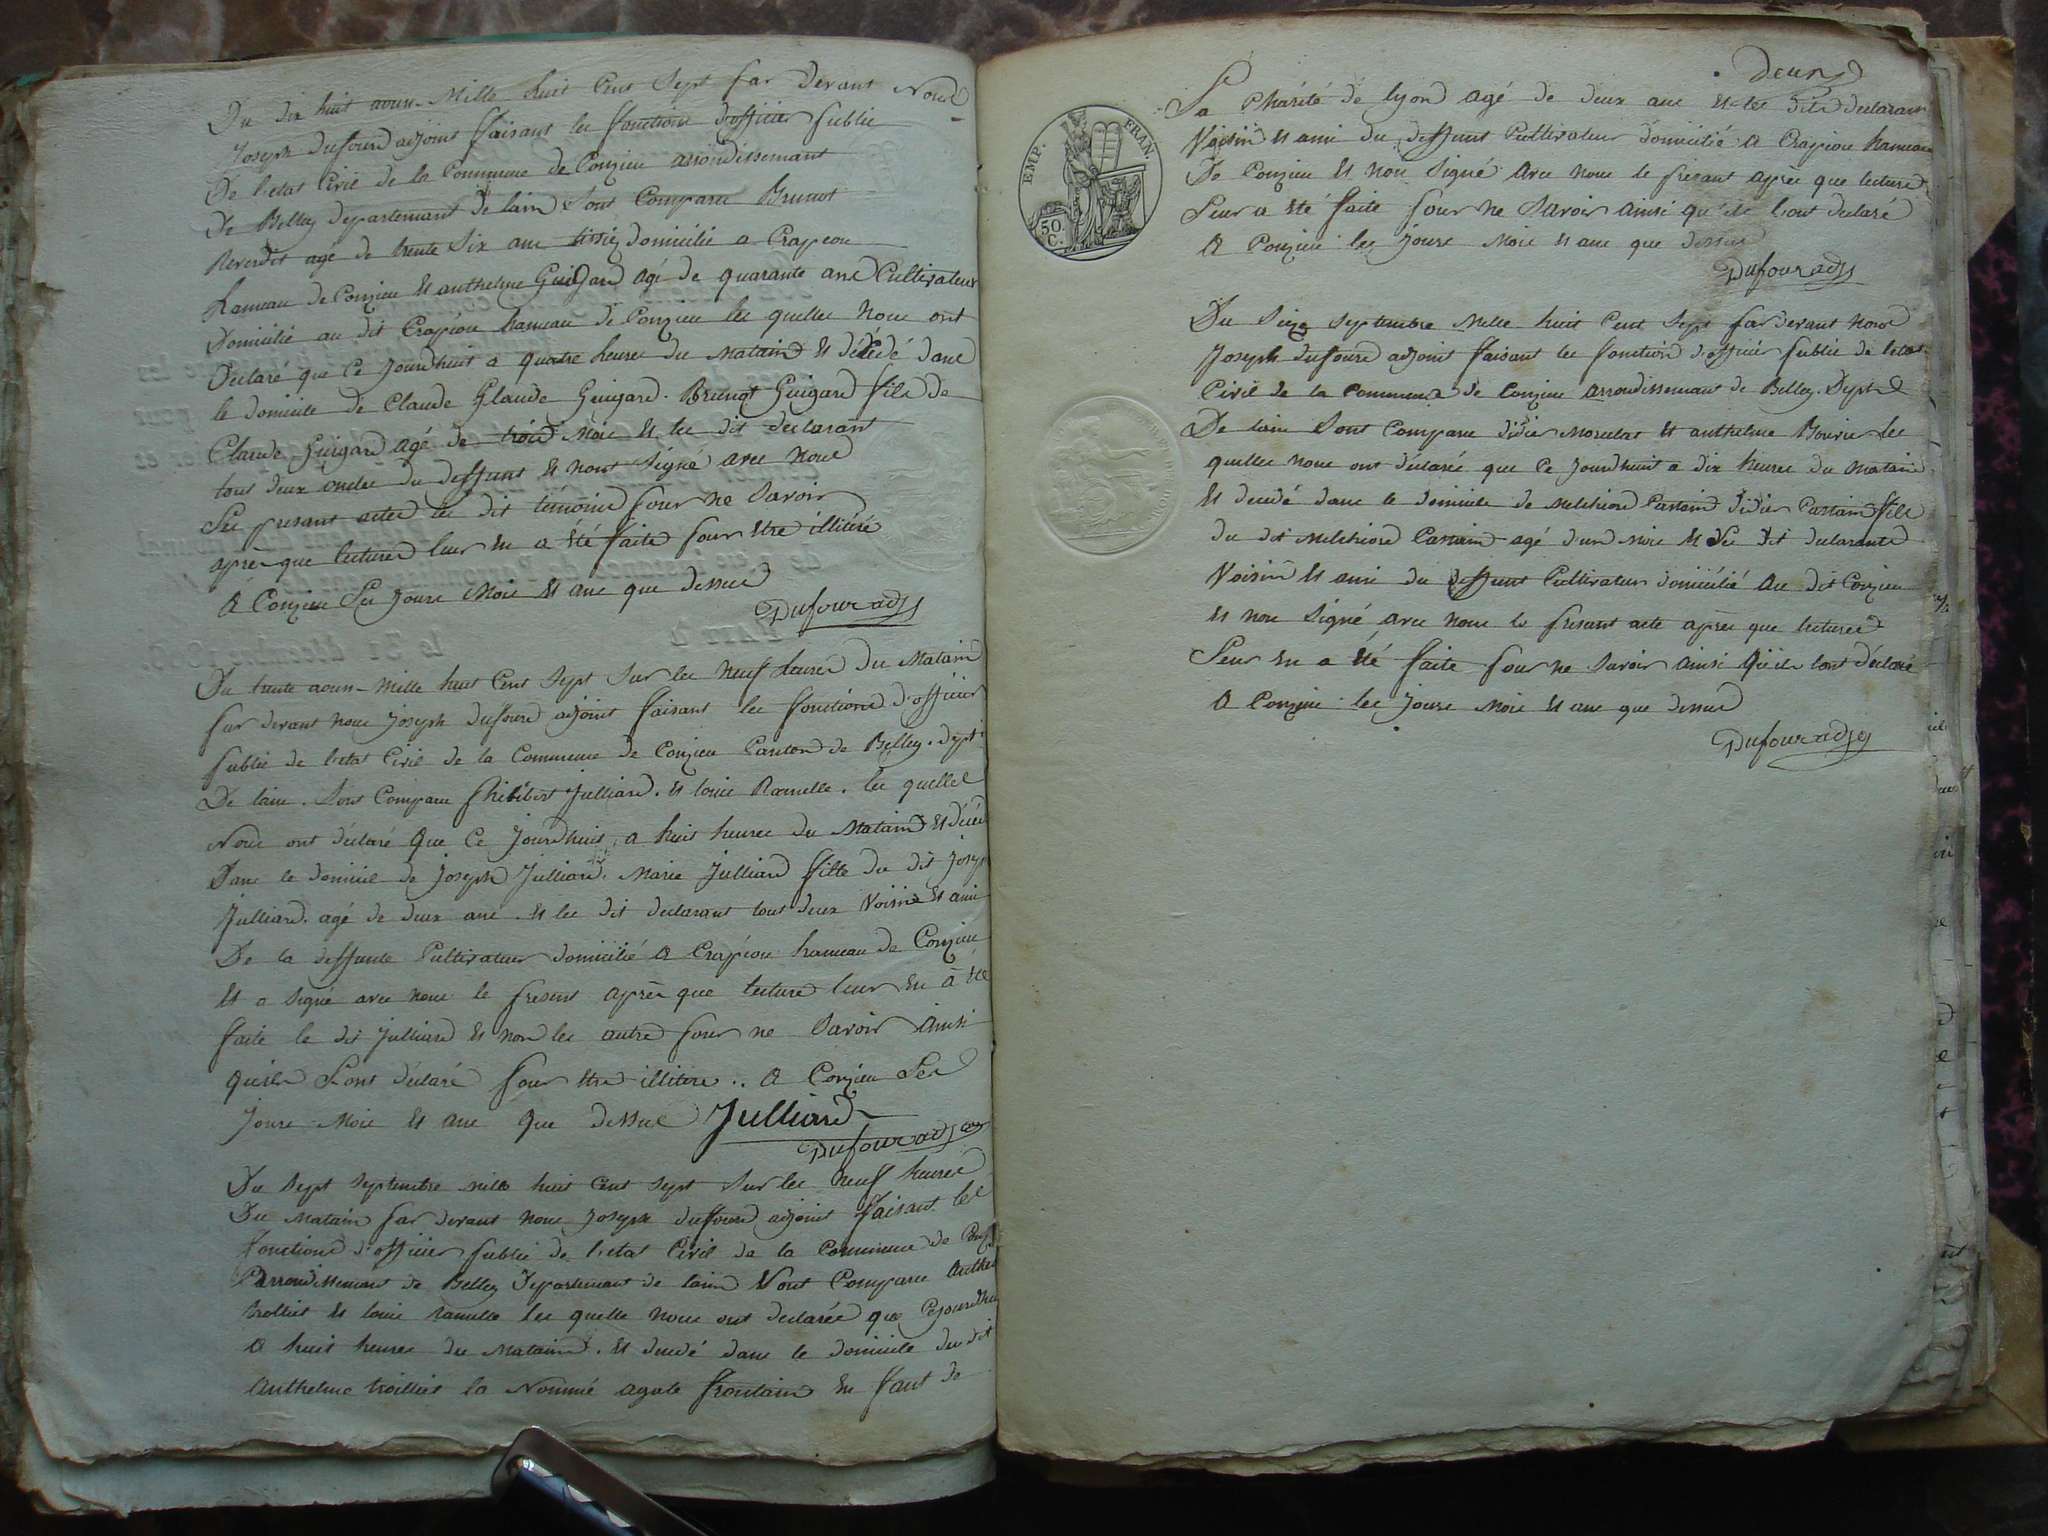 Du dix huit aous Mille huit Cent Sept par devant Nous
Joseph dufour adjoint faisant les fonctions d'officier public
De l'etat Civil de la Commune de Conzieu arrondissemant
De Belley departemant de lain Sont Comparu Brunot
Reverdit agé de trente Six ans tissié domicilié a Crapeou
hameau de Conzieu et anthelme Guigard agé de quarante ans Cultivateur
Domicilié au dit Crapéou hameau de Conzieu les quelles Nous ont
Déclaré que Ce Jourdhuit a quatre heures du Matain Et décédé dans
le domicile de Claude Glaude Guigard. Brunot Guigard fils de
Claude Guigard agé de trois Mois Et les dit declarant
tout deux oncles du deffunt Et nont Signé avec Nous
Les presant actes les dit témoins pour ne Savoir
après que lectures leur En a été faite pour Etre illitéré
A Conzieu Les Jours Mois Et ans que dessus
Dufour adj
Du trente aous Mille huit Cent Sept Sur les Neuf heures Du Matain
par devant Nous Joseph dufour adjoint faisant les fonctions d'officier
public de l'etat Civil de la Commune de Conzieu Canton de Belley. dept
De lain. Sont Comparu Philibert Julliard. Et louis Ramelle. les quelles
Nous ont déclaré Que Ce Jourdhuit a huit heures du Matain Et décédé
Dans le domicil de Joseph Julliard. Marie Julliard fille du dit Joseph
Julliard. agé de deux ans. Et les dit declarant tout deux Voisins Et ami
De la deffunte Cultivateur domicilié A Crapéou hameau de Conzieu
Et a signé avec nous le presant après que lecture leur En a été
faite le dit Julliard Et non les autre pour ne Savoir ainsi
quils Lont déclaré pour Etre illitere.. A Conzieu Les
Jours Mois Et ans Que dessus Julliard
Dufour adj
Du Sept Septembre mille huit Cent Sept Sur les Neuf heures
Du Matain par devant Nous Joseph dufour adjoint faisant les
fonctions d'officier public de l'etat Civil de la Commune de
arrondissemant de Belley Departemant de lain Sont Comparu
trolliet Et louis ramelle les quelle Nous ont declarée que Cejourdhui
A huit heures du Matain. Et decédé dans le domicile du dit
Anthelme trolliet la Nommé agate En fant de
deux
La Charité de lyon agé de deux ans Et les dits declarans
Voisin Et ami du deffunt Cultivateur domicilié a Crapiou hameau
De Conzieu Et Non Signé avec Nous le presant après que lecture
Leur a Eté faite pour ne Savoir ainsi qu'ils lont declaré
A Conzieu les Jours Mois Et ans que dessus
Dufour adj
EMP. FRAN.
50.
C.
Du Seize Septembre Mille huit Cent Sept par devant nous
Joseph dufour adjoint faisant les fonctions d'officier public de letat
Civil de la Commune de Conzieu arrondissemant de Belley. Dept
De lain Sont Comparu didier Morelat Et anthelme Bouvie les
quelles Nous ont declarée que Ce Jourdhuit a dix heures du Matain
Et decedé dans le domicile de Melchiord Castain Didier Castain fils
du dit Melchiord Castain agé dun mois Et Les dit declarants
Voisin Et ami du deffunt Cultivateur domicilié Au dit Conzieu
Et non Signé avec Nous le presant acte après que lectures
Leur En a Eté faite pour ne Savoir ainsi Quils lont déclaré
A Conzieu les Jours Mois Et ans que dessus
Dufour adj